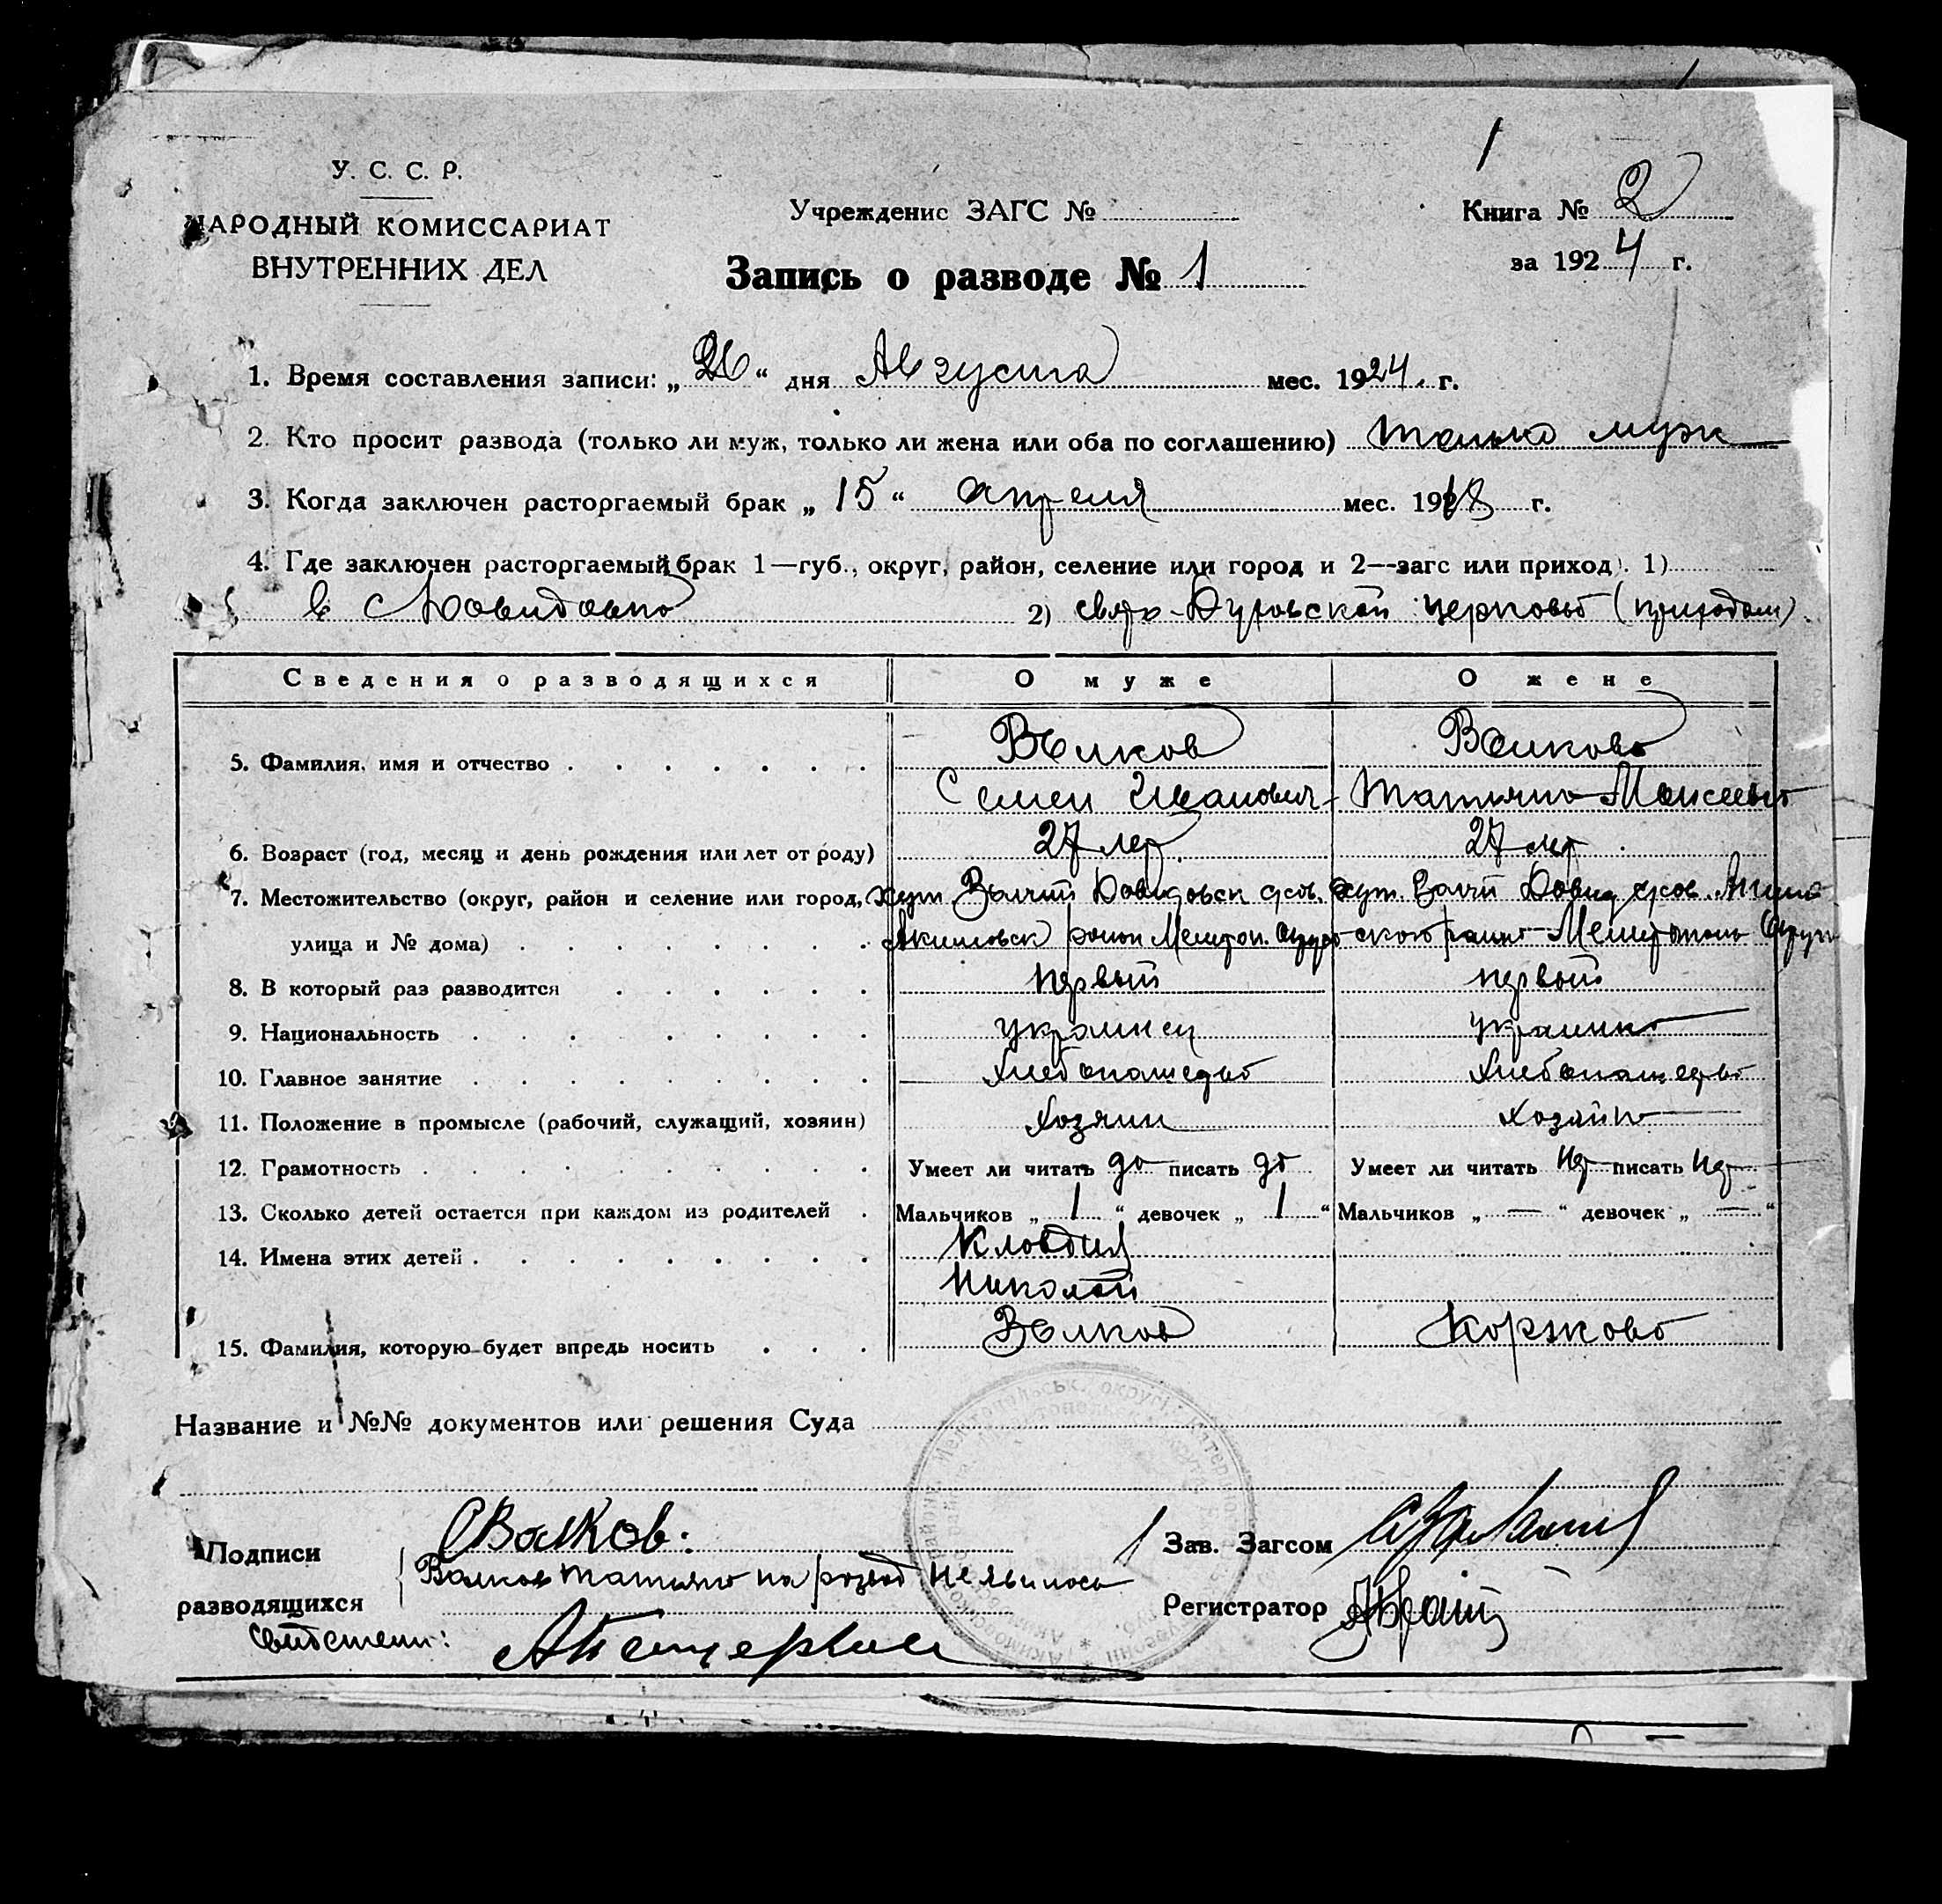 1
У. С. С. Р.
НАРОДНЫЙ КОМИССАРИАТ
ВНУТРЕННИХ ДЕЛ
Учреждение ЗАГС №
Книга № 2
за 1924 г.
Запись о разводе № 1
1. Время составления записи: „26“ дня Августа мес. 1924. г.
2. Кто просит развода (только ли муж, только ли жена или оба по соглашению) только муж
3. Когда заключен расторгаемый брак „15“ апреля мес. 1918 г.
4. Где заключен расторгаемый брак 1—губ., округ, район, селение или город и 2—загс или приход). 1)
в с Давидовка 2) свято-Духовской церковью (приходом)
Сведения о разводящихся О муже О жене
5. Фамилия, имя и отчество Волков Волкова
Семен Иванович Татьяна Моисеевна
6. Возраст (год, месяц и день рождения или лет от роду) 27 лет. 27 лет
7. Местожительство (округ, район и селение или город, хут. Давидовск хут. Давид
улица и № дома) Акимовск район Мелитоп. округ
8. В который раз разводится первый первый
9. Национальность украинец украинка
10. Главное занятие Хлебопашество Хлебопашество
11. Положение в промысле (рабочий, служащий, хозяин) Хозяин Хозяйка
12. Грамотность Умеет ли читать да писать да Умеет ли читать нет писать нет
13. Сколько детей остается при каждом из родителей Мальчиков „ 1 “ девочек „ 1 “ Мальчиков „ — “ девочек „ — “
14. Имена этих детей Клавдия
Николай
15. Фамилия, которую будет впредь носить Волков Коржова
Название и №№ документов или решения Суда
Подписи СВолков. Зав. Загсом
разводящихся Волкова Татьяна на развод не явилась Регистратор
Свидетели: